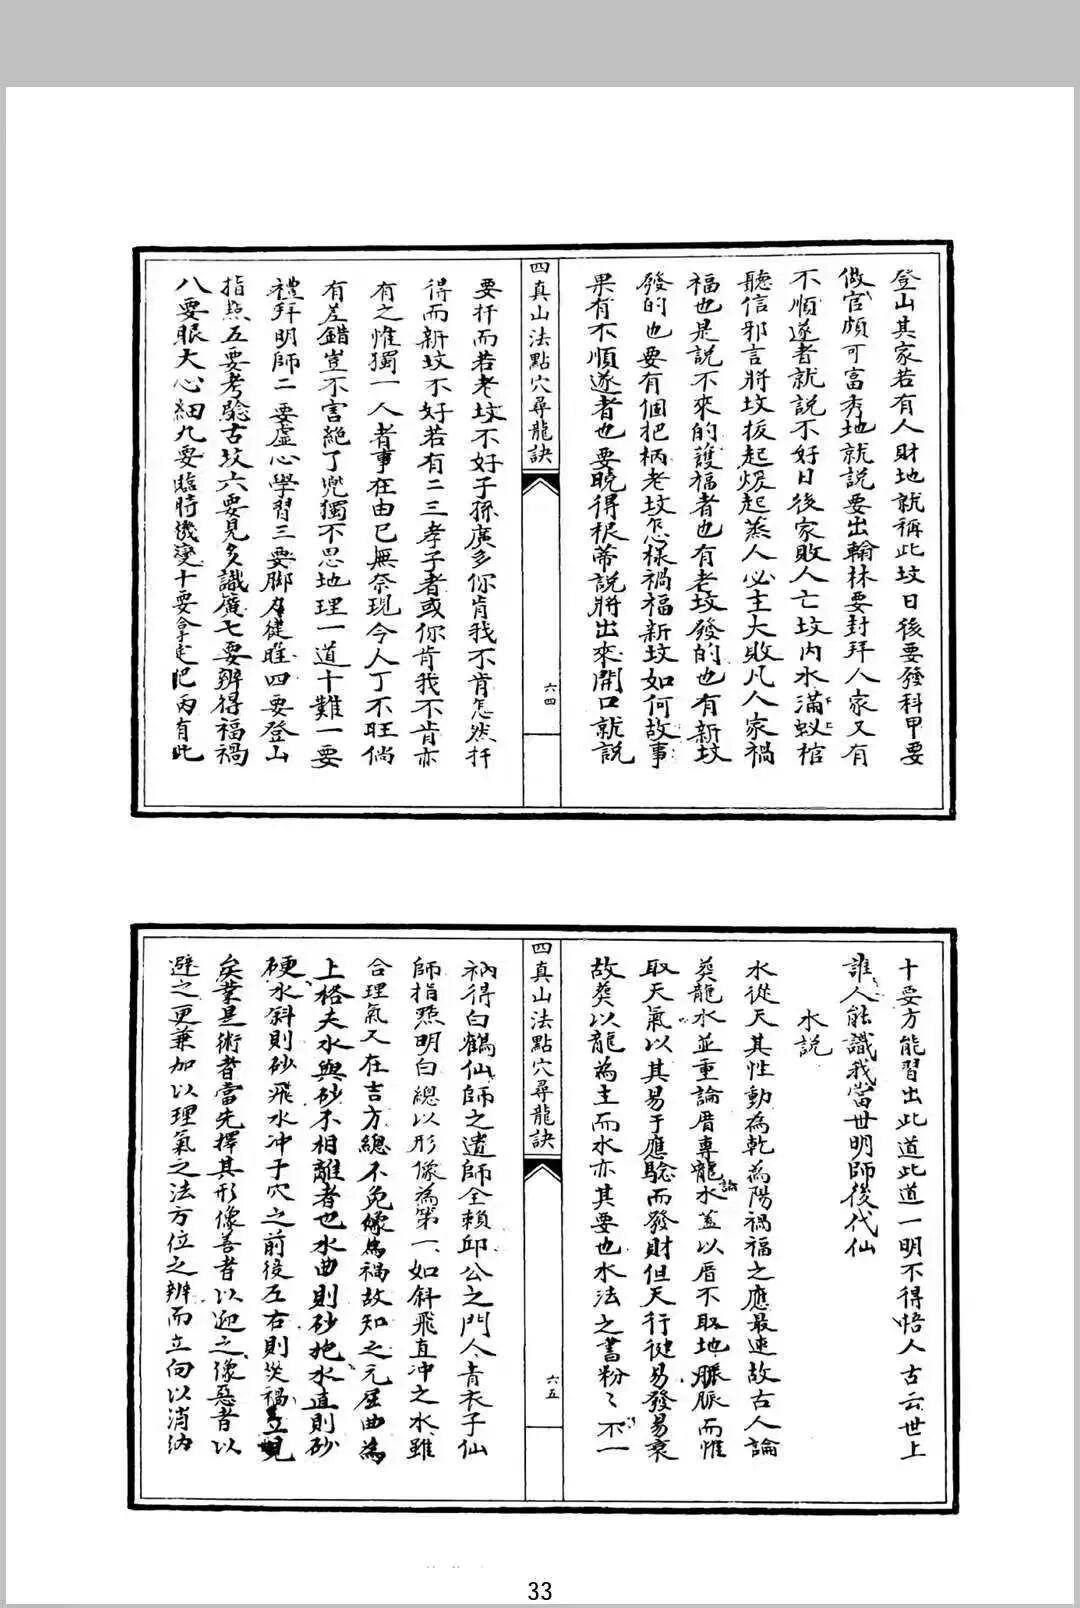 登山其家若有人財地就稱此坟日後要發科甲要
做官頗可富秀地就説要出翰林要封拜人家又有
不順遂者就説不好日後家敗人亡坟内水滿蚁棺
聽信邪言將坟扳起煖起蒸人必主大敗凡人家禍
福也是説不來的護福者也有老坟發的也有新坟
發的也要有個把柄老坟怎樣禍福新坟如何故事
果有不順遂者也要曉得根蒂説將出來開口就説
四真山法點穴尋龍訣
六四
要扦而若老坟不好子孫廣多你肯我不肯怎然扦
得而新坟不好若有二三孝子者或你肯我不肯亦
有之惟獨一人者事在由已無奈現今人丁不旺倘
有差錯豈不言絶了兜獨不思地理一道十難一要
禮拜明師二要虛心學習三要脚力徒睢四要登山
指㸃五要考驗古坟六要見多識廣七要辨得福禍
八要眼大心細九要臨時機變十要拿定把丙有此
十要方能習出此道此道一明不得悟人古云世上
誰人能識我當世明師後代仙
水説
水從天其性動為乾為陽禍福之應最速故古人論
葬龍水並重論厝專論龍水蓋以厝不取地脈而惟
取天氣以其易于應驗而發財但天行健易發易衰
故葬以龍為主而水亦其要也水法之書粉〻不一
四真山法點穴尋龍訣
六五
衲得白鶴仙師之遺師全賴邱公之門人青衣子仙
師指㸃明白總以形像為第一如斜飛直冲之水雖
合理氣又在吉方總不免為禍故知之元屈曲為
上格夫水與砂不相離者也水曲則砂抱水直則砂
硬水斜則砂飛水冲于穴之前後左右則災禍立見
矣業是術者當先擇其形像善者以迎之像惡者以
避之更兼加以理氣之法方位之辨而立向以消納
33